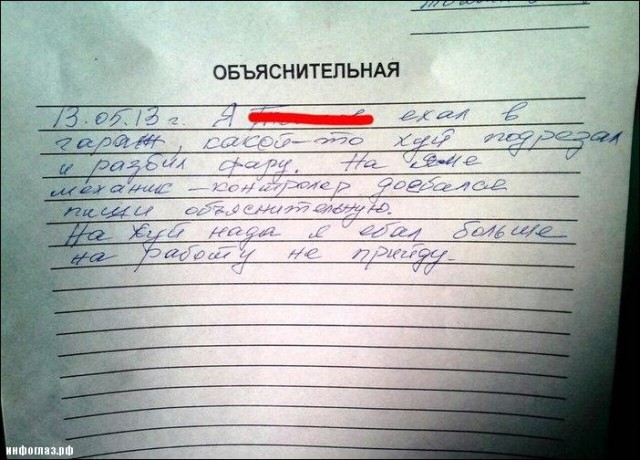 ОБЪЯСНИТЕЛЬНАЯ
13.05.13 г. Я ехал в
гараж, какой-то хуй подрезал
и разбил фару. На яме
механик-контролер доебался
пиши объяснительную.
На хуй нада я ебал больше
на работу не прийду.
инфоглаз.рф